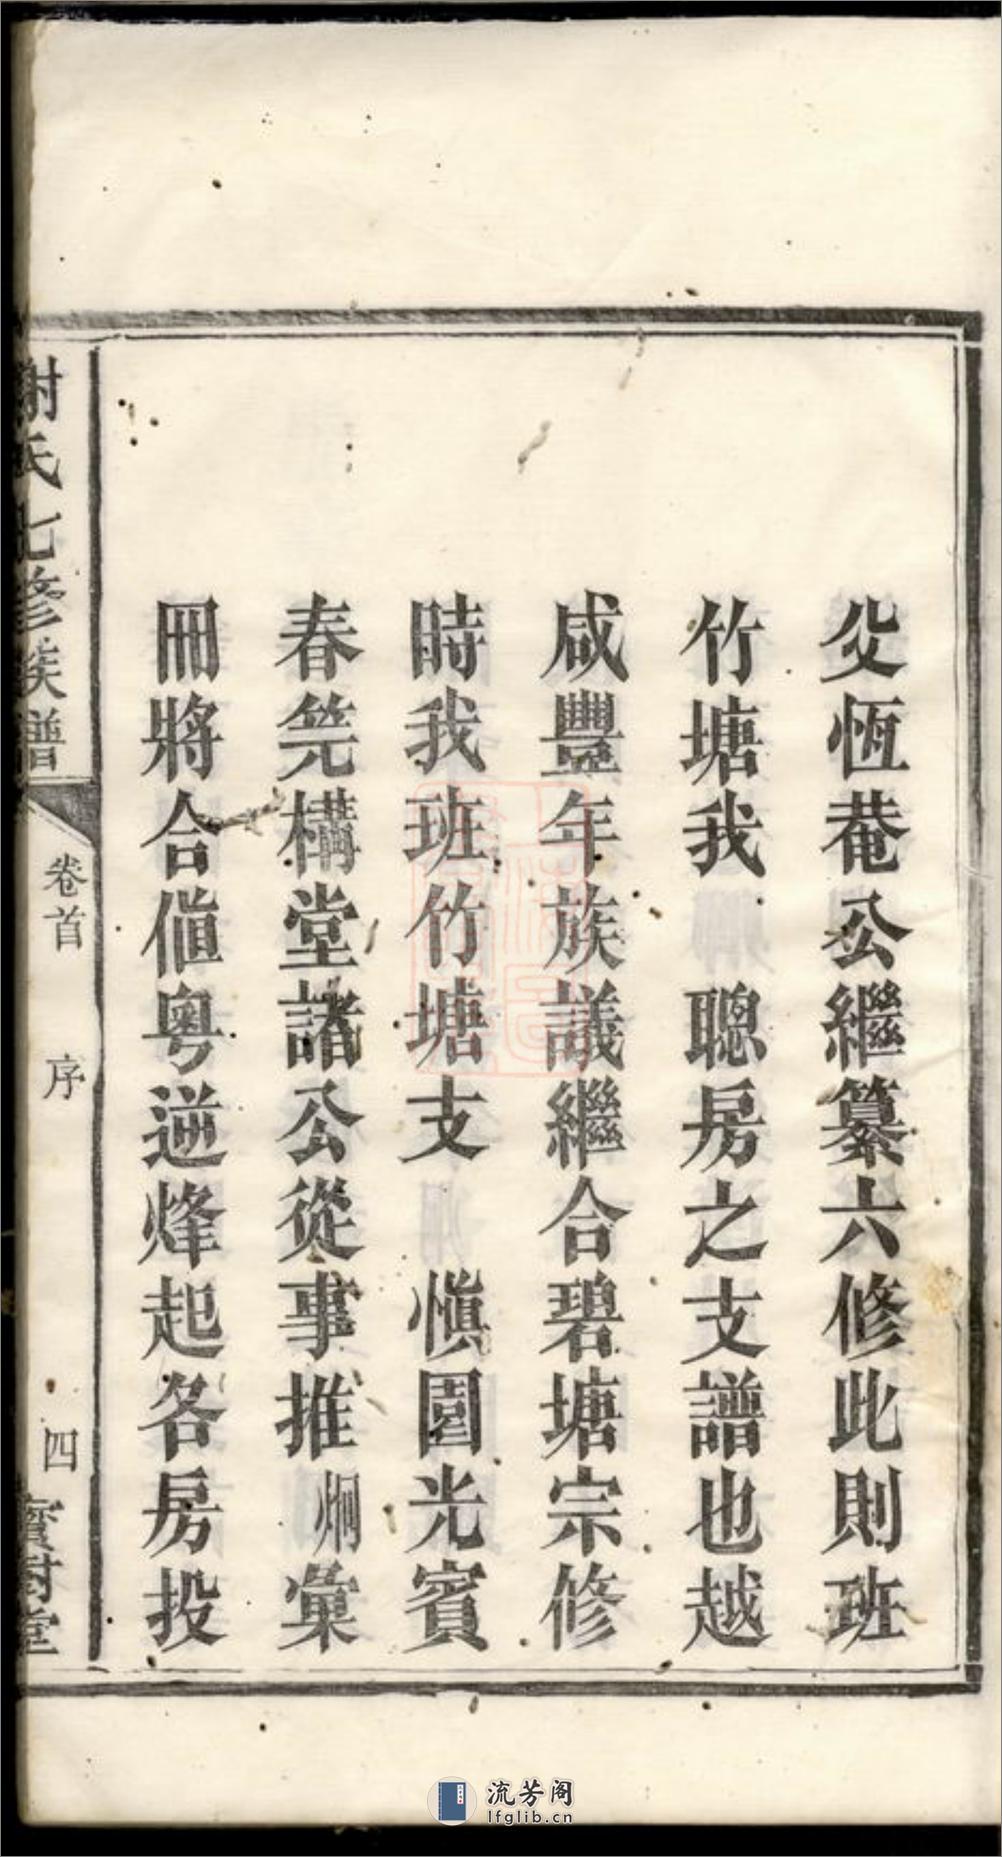 父恆菴公繼纂六修此則班
竹塘我　聰房之支譜也越
咸豐年族議繼合碧塘宗修
時我班竹塘支　慎園光賓
春筦構堂諸公從事推炯彙
冊將合値粤逆烽起各房投
謝氏七修族譜
卷首　序　四
寶樹堂
流芳阁
lfglib.cn